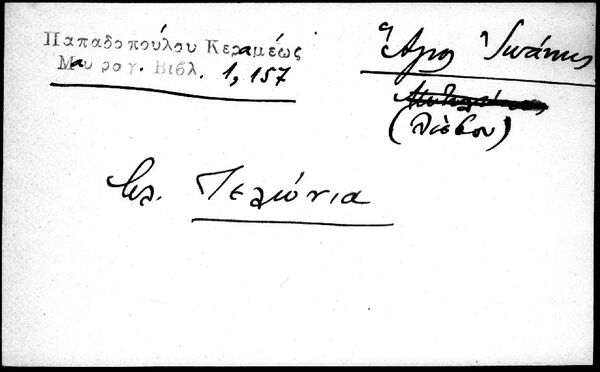 Παπαδοπούλου Κεραμέως
Μαυρογ. Βιβλ. 1, 157
Ἅγιος Ἰωάννης
(Λέσβου)
βλ. Τελώνια